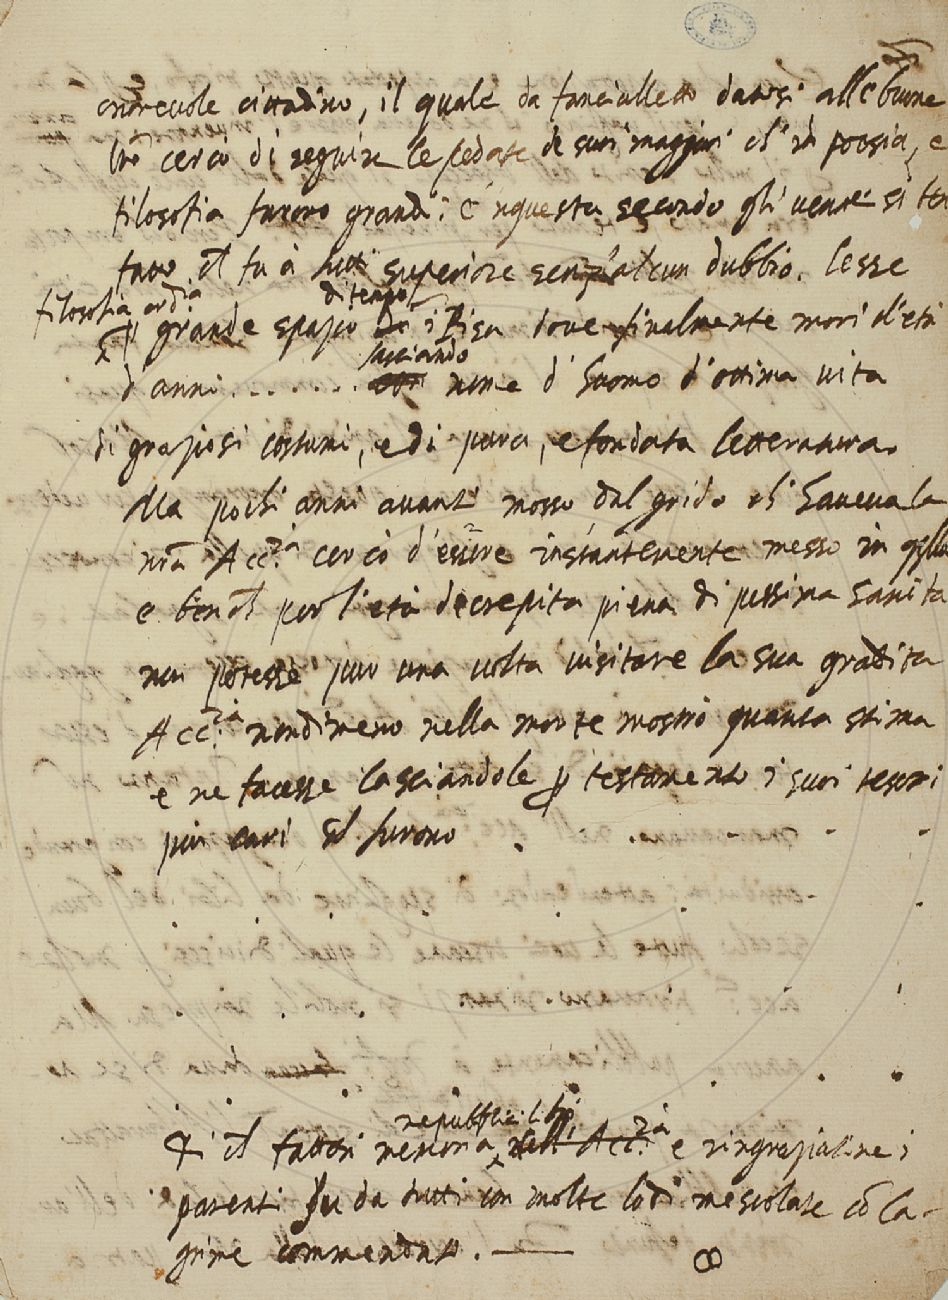 onorevole cittadino, il quale da fanciulletto datosi alle buone
lr̃e cercò di seguire le pedate de suoi maggiori ch'in poesia, e
filosofia furono grandi: e 'nquesta secondo gli venne sì ben
fatto ch̃ fu à tutti superiore senz'alcun dubbio. Lesse
filosofia ordia
di tempo
grande spazio in Pisa dove finalmente morì d'età
lasciando
d'anni ........ nome d'huomo d'ottima vita
di graziosi costumi, e di pura, e fondata letteratura.
Ma pochi anni avanti mosso dal grido ch'haveva la
nrã Acc.ia cercò d'essere instantemente messo in quella
e benchẽ per l'età decrepita piena di pessima sanità
non potesse pur una volta visitare la sua gradita
Acc.ia nondimeno nella morte mostrò quanta stima
e ne facesse lasciandole p testamento i suoi tesori
più cari ch̃ furono .
repubblic
Di ch̃ fattosi memoria nell' Acc.ia e ringraziatine i
parenti fu da tutti con molte lodi mescolate cõ la-
grime commendato.
8